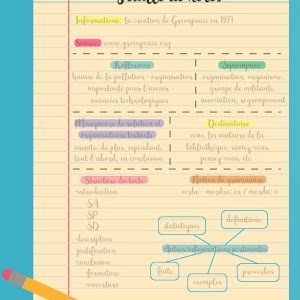 Feuille de notes
Informations: La création de Greenpeace en 1971
Source: www.greenpeace.org
Réflexions
Synonymes
hausse de la pollution - organisation
important pour l'avenir -
avancées technologiques
organisation, organisme,
groupe de militants,
association, regroupement
Marqueurs de relation et
organisateurs textuels
Destinataire
ensuite, de plus, cependant,
tout d'abord, en conclusion
vous, les visiteurs de la
bibliothèque, savez-vous,
pensez-vous, etc.
Structure du texte
Notion de grammaire
-introduction
verbe - mordre: er / mordu, e
-SA
-SP
-SD
définitions
statistiques
-description
-justification
-conclusion
-fermeture
-ouverture
Autres informations pertinentes
faits
exemples
proverbes